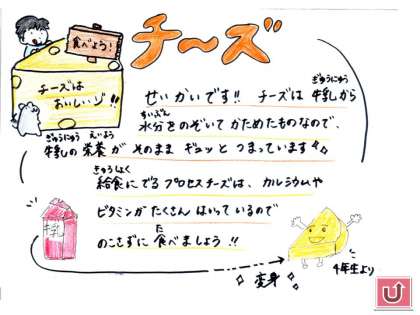 チーズ
食べよう!
チーズは
おいしいゾ!!
せいかいです!! チーズは 牛乳から
ぎゅうにゅう
水分をのぞいて かためたものなので、
すいぶん
牛乳の 栄養が そのまま ギュッと つまっています
ぎゅうにゅう えいよう
給食に でる プロセスチーズは、カルシウムや
きゅうしょく
ビタミンが たくさん はいって いるので
のこさずに 食べましょう!!
た
牛乳
変身
4年生より